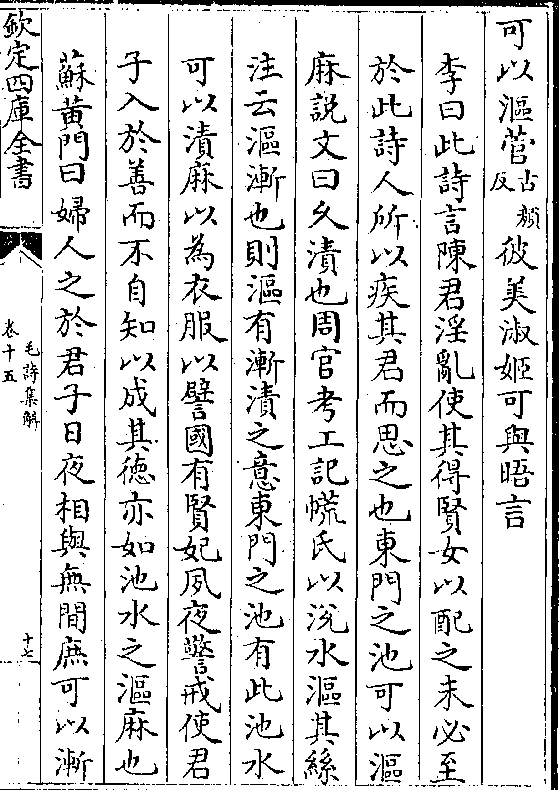 可以漚菅古顏反彼美淑姬可與晤言
李曰此詩言陳君淫亂使其得賢女以配之未必至
於此詩人所以疾其君而思之也東門之池可以漚
麻說文曰久漬也周官考工記㡛氏以涗水漚其絲
注云漚漸也則漚有漸漬之意東門之池有此池水
可以漬麻以為衣服以譬國有賢妃夙夜警戒使君
子入於善而不自知以成其徳亦如池水之漚麻也
蘇黄門曰婦人之於君子日夜相與無間庶可以漸
欽定四庫全書
毛詩集解
卷十五
十七